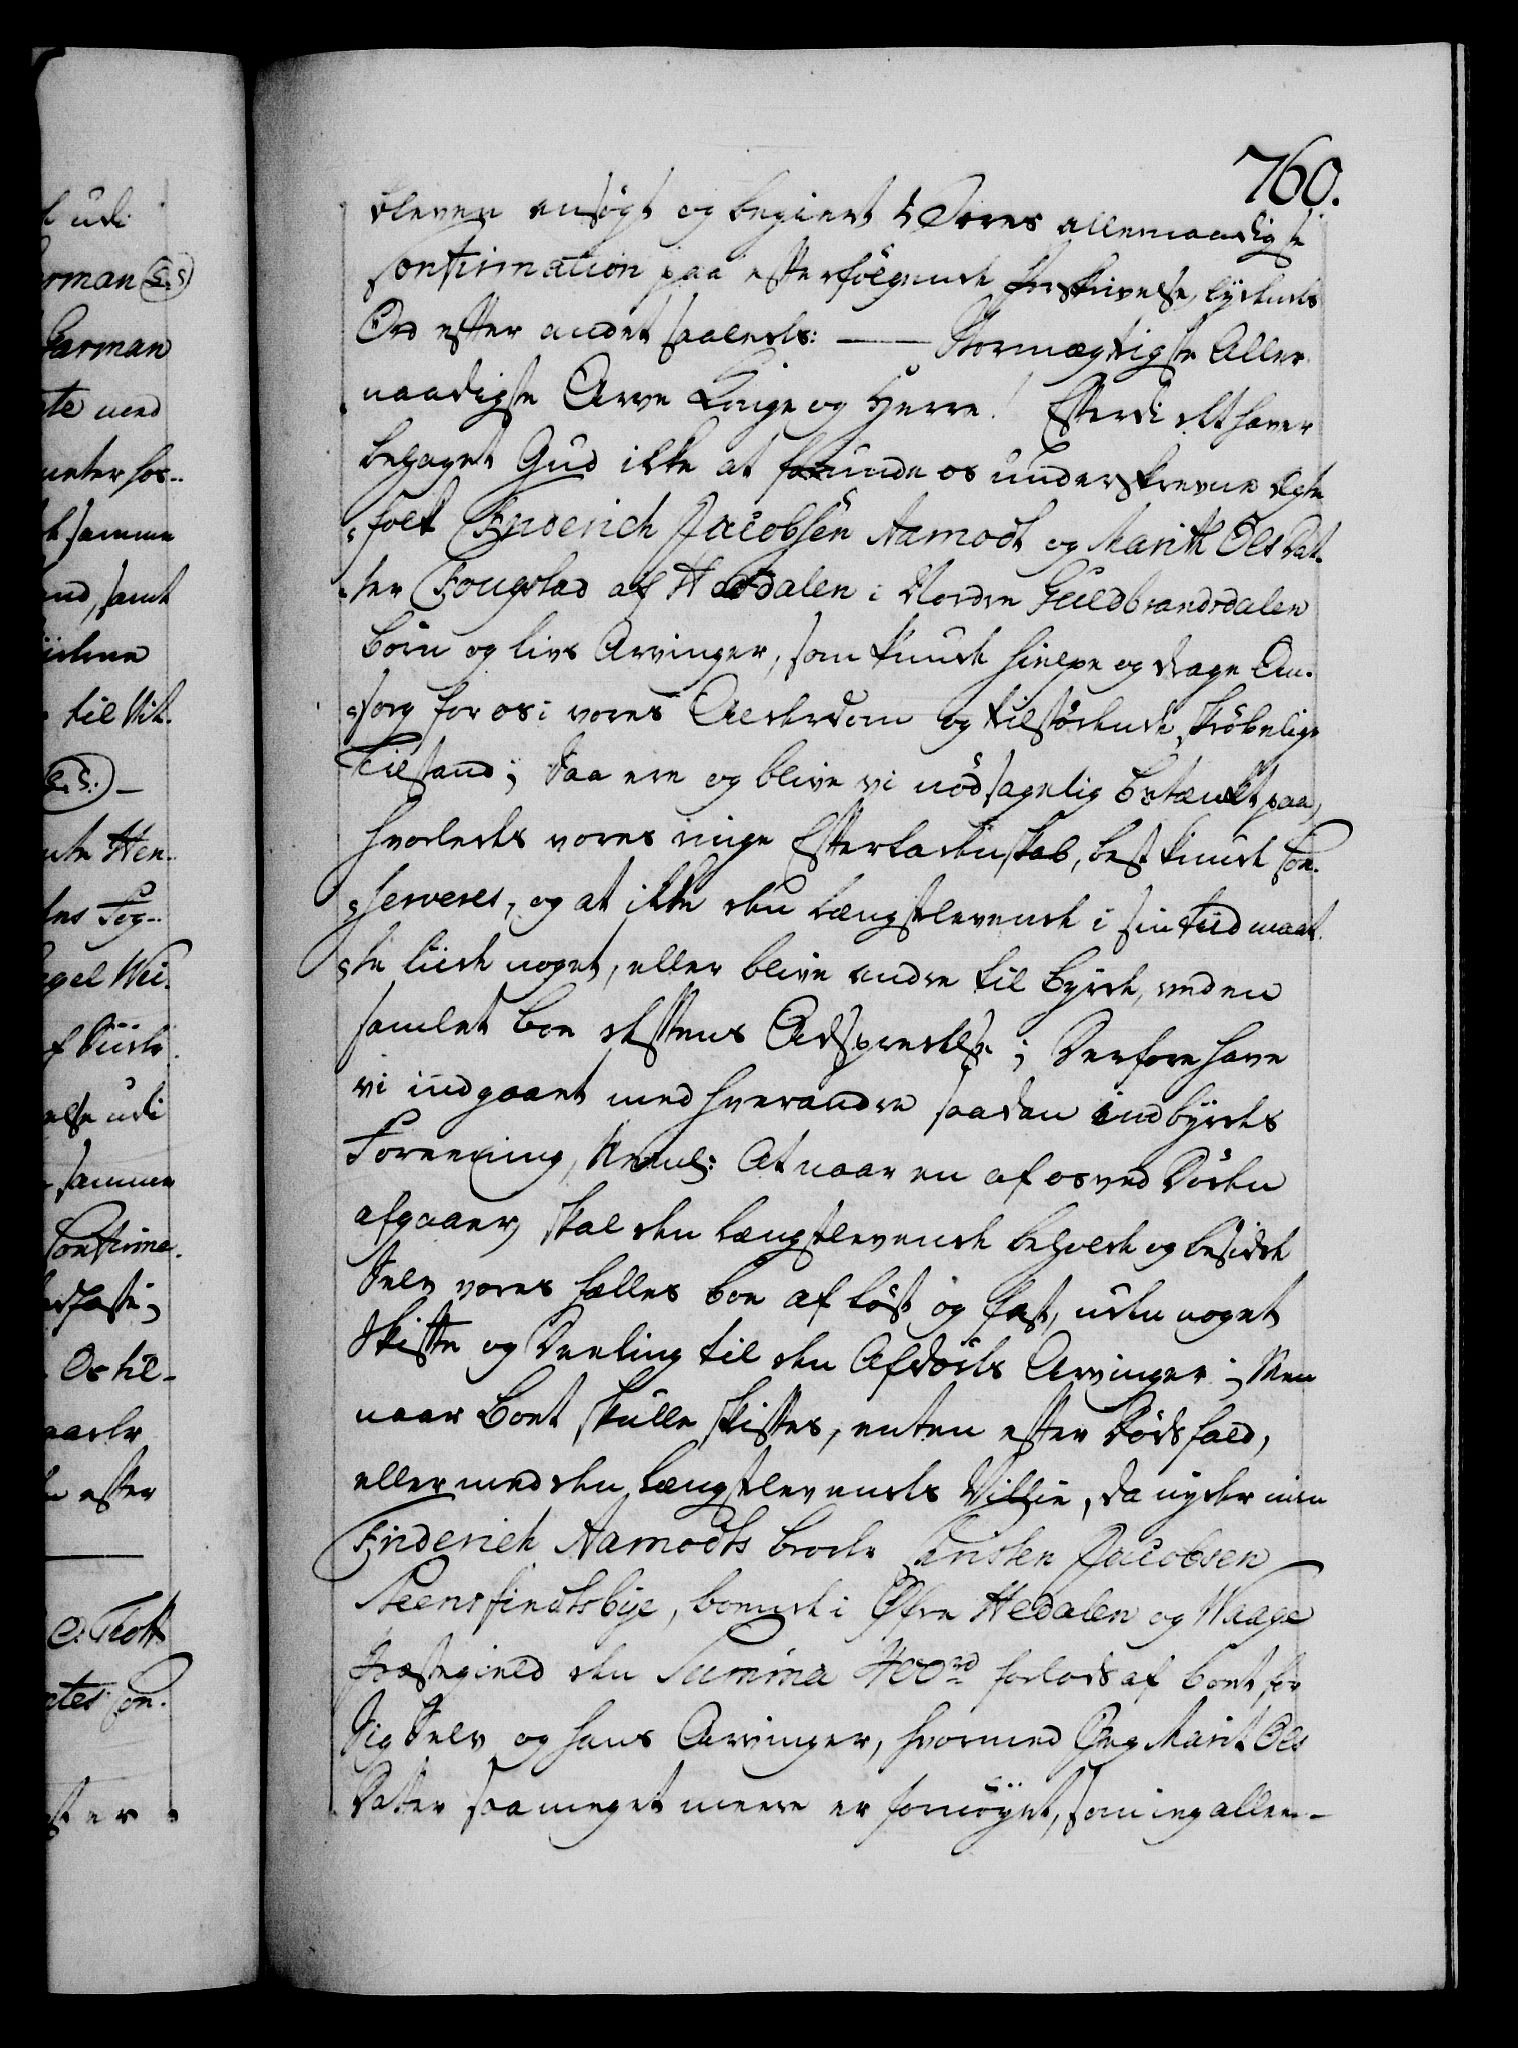 760.
bleven ansøgt og begiert Vores allernaadigste
Confirmation paa efterfølgende Forskrivelse, lydende
Ord efter andet saaleds: —— Stormægtigste Aller-
naadigste Arve Konge og Herre! Efterdi det haver
behaget Gud ikke at forunde os underskrevne Egte
-folk Friderich Jacobsen Aamodt og Marith Ols Dat-
-ter Fougstad af Hedalen i Nordre Guldbrandsdalen
Børn og Livs Arvinger, som kunde hielpe og drage Om-
-sorg for os i vores Alderdom og tilstødende skrøbelige
Tilstand; Saa ere og blive vi nødsagelig betænkt paa,
hvorledes vores ringe Efterladenskab, best kunde Con-
-serveres, og at ikke den længstlevende i sin tiid maat-
-te liide noget, eller blive andre til byrde, ved en
samlet boe dessens Adspredelse; Derfore have
vi indgaaet med hverandre saadan indbyrdes
Foreening, Neml: At naar en af os ved Døden
afgaaer, skal den længstlevende beholde og besidde
Selv vores fælles boe af løst og fast, uden noget
Skifte og Deeling til den Afdødes Arvinger; Men
naar boet skulle skiftes, enten efter Dødsfald,
eller med den længstlevendes Villie, da nyder min
Friderich Aamodts broder Christen Jacobsen
Steensfindtsbye, boende i Øfre Hedalen og Waage
Præstegield den Summa 400 rd forlods af boet for
Sig Selv og hans Arvinger, hvormed Jeg Marit Ols
Datter saa meget meere er fornøyet, som ieg allen-